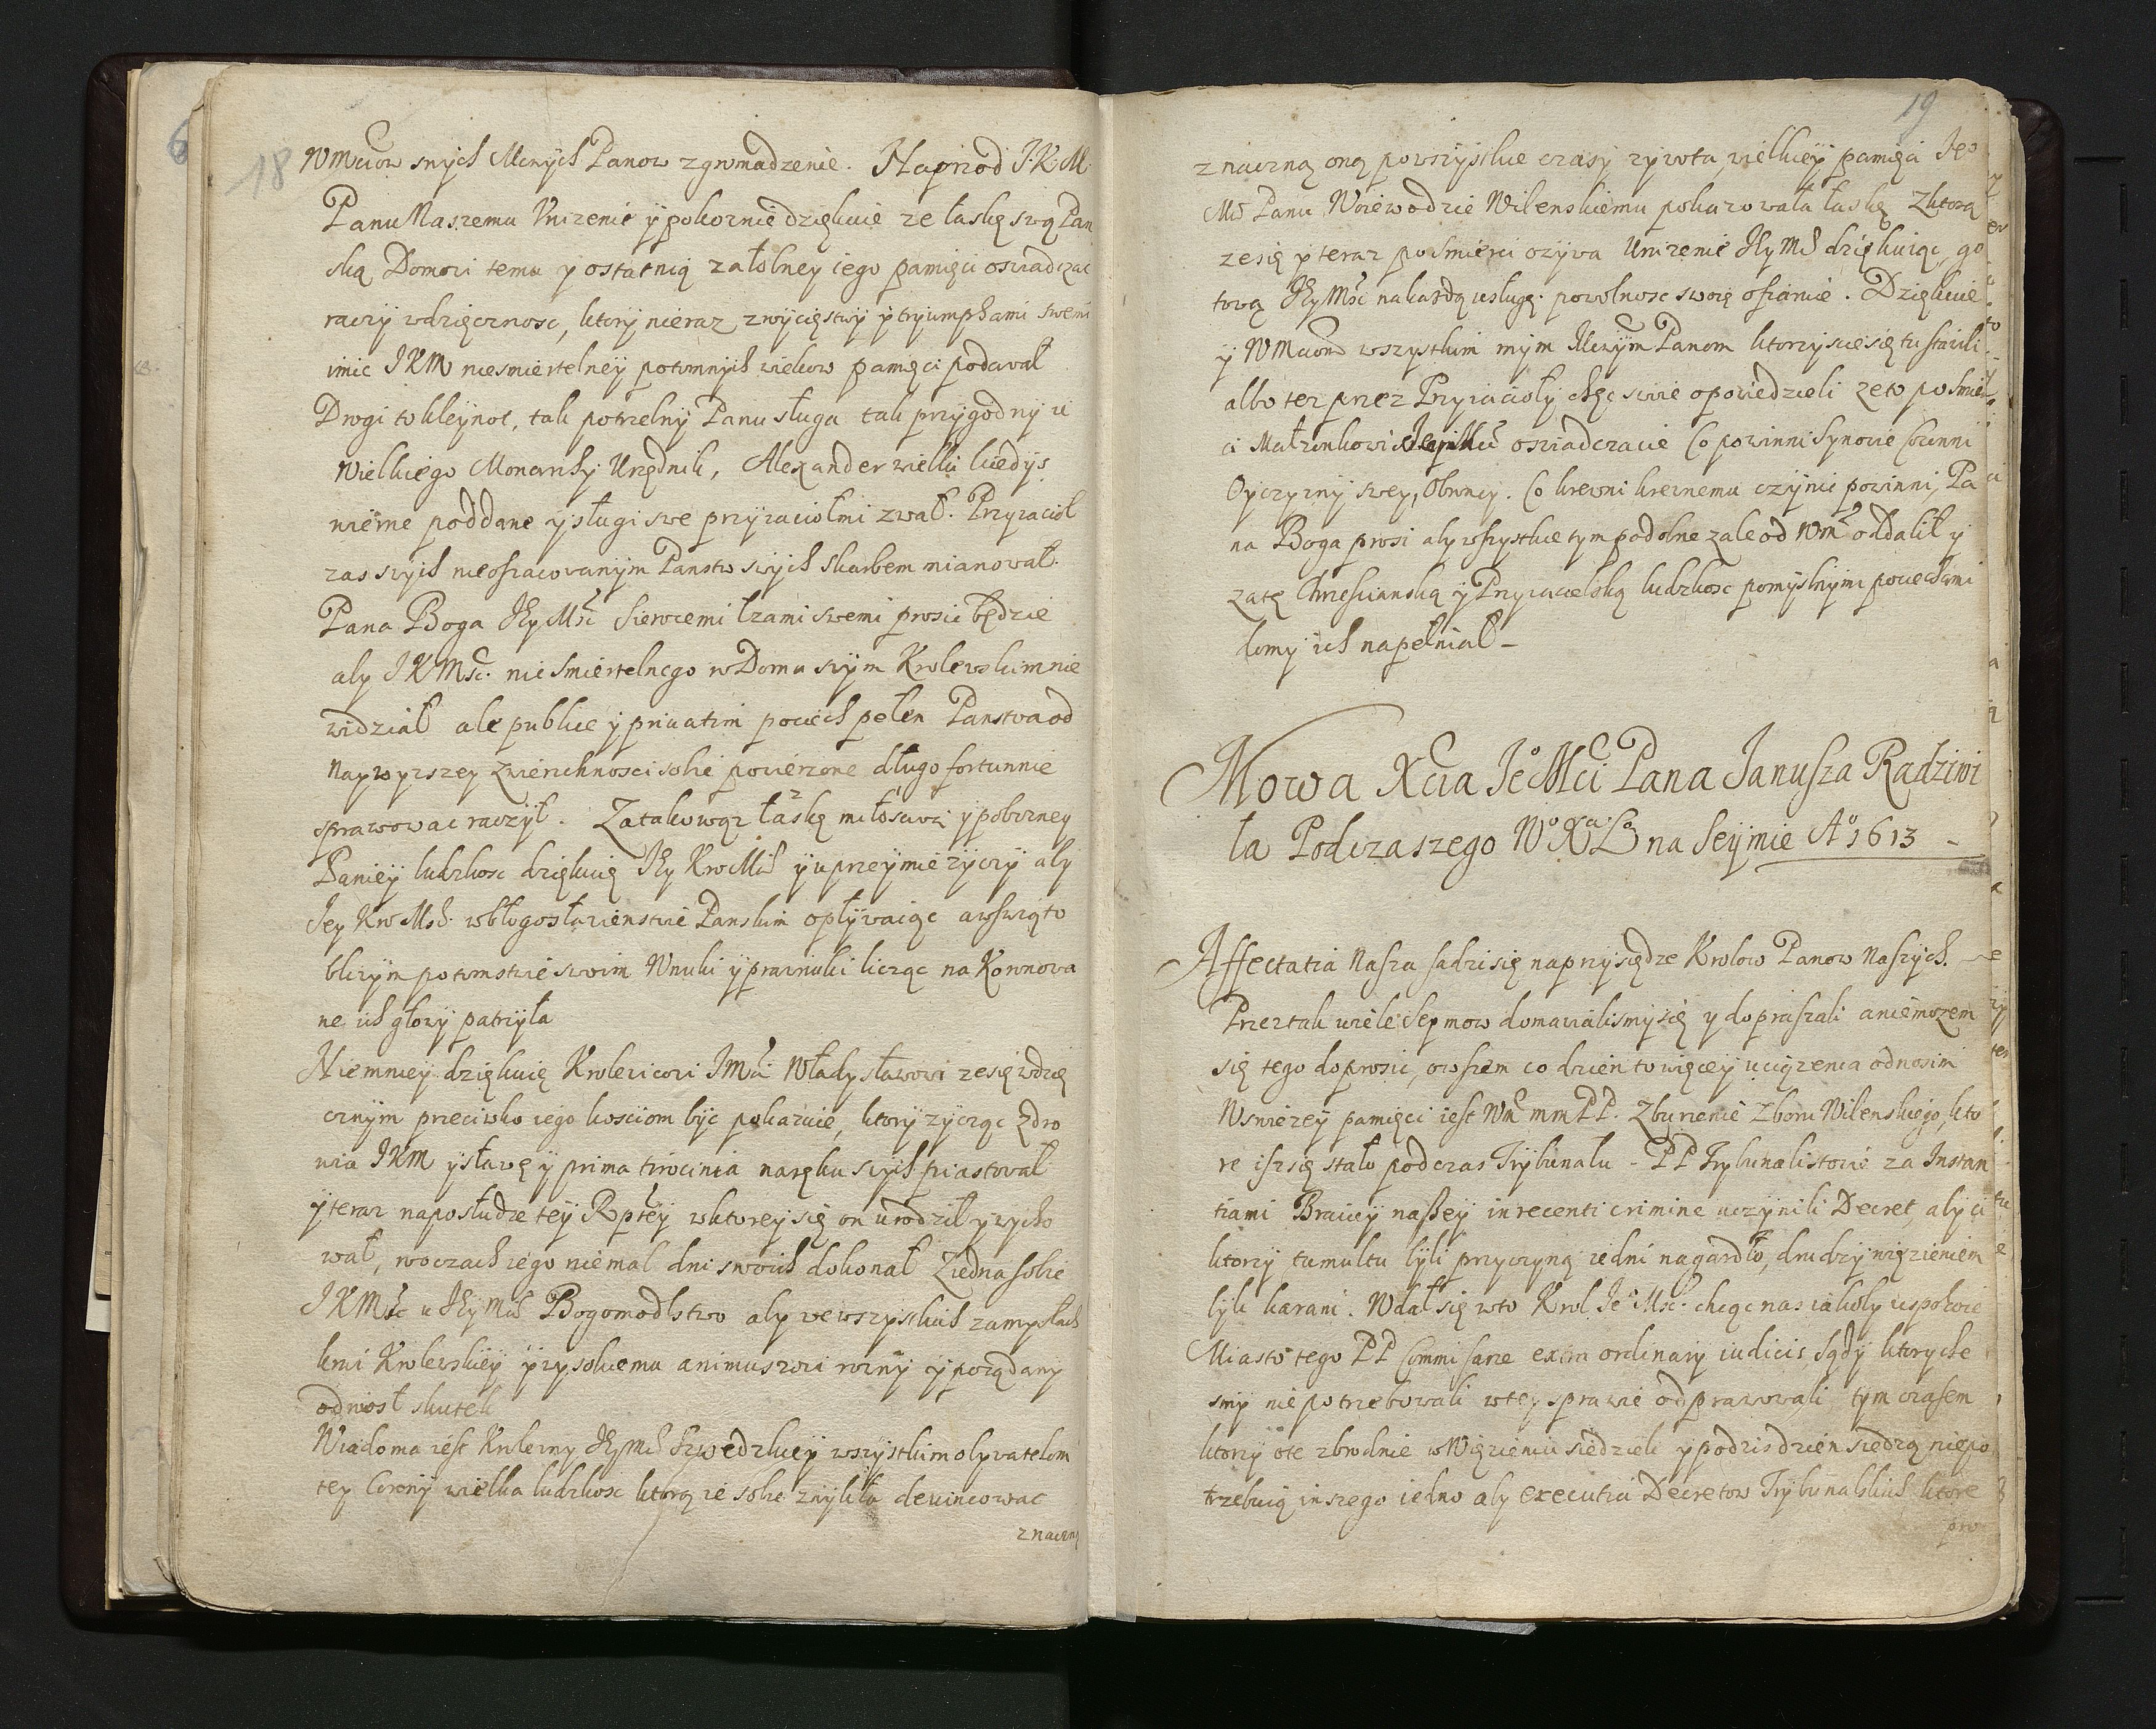 18
WMciow swych Mciwych Panow zgromadzenie. Naprzod J.K.M.
Panu Naszemu Unizenie y pokornie dziękuie ze łaskę swą Pan
ską Domowi temu y ostatnią załobney iego pamięci oswiadczac
raczy wdzięcznosc, ktory nieraz zwycięstwy y tryumphami swemi
imie JKM niesmiertelney potomnych wiekow pamęci podawał
Drogi to kleynot, tak potrzebny Panu sługa tak przygodny u
Wielkiego Monarchy Urzędnik, Alexander wielki kiedys
wierne poddane y sługi swe przyiaciołmi zwał. Przyiacioł
zas swych nieoszacowanym Panstw swych skarbem mianował.
Pana Boga Jey Mść Sierocemi łzami swemi prosic będzie
aby JKMsc. nic smiertelnego w Domu swym Krolewskim nie
widział ale publice y privatim pociech pełen Panstwa od
Naywyzszey Zwierzchnosci sobie powierzone długo fortunnie
sprawowac raczył. Zatakowąz łaskę miłosciwą y poborney
Paniey ludzkosc dziękuię Jey Kro Mści y uprzeymie zyczy aby
Jey Kro Msc. w błogosławienstwie Panskim opływaiąc a w swiąto
bliwym potomstwie swoim Wnuki y prawnuki licząc na Koronowa
ne ich głowy patrzyła
Niemniey dziękuię Krolewicowi JMci Władysławowi ze się wdzię
cznym przeciwko iego kosciom byc pokazuie, ktory zycząc zdro
wia JKM y sławę y prima tirocinia na ręku swych piastował
y teraz na posłudze tey Rptey w ktorey się on urodził y wycho
wał, w oczach iego niemal dni swoich dokonał Ziedna sobie
JKMsc u Jey Mci Bogomodlstwo aby we wszyskich zamysłach
krwi Krolewskiey y wysokiemu animuszowi rowny y porządany
odniosł skutek
Wiadoma iest Krolewny Jey Mci Szwedzkiey wszystkim obywatelom
tey Corony wielka ludzkosc ktorą ie sobie zwykła devincowac
znaczną
19
znaczną oną powszyskie czasy zywota, wielkiey pamięci Je°
Mci Panu Woiewodzie Wilenskiemu pokazowała łaskę Zktorą
ze się y teraz po smierci ozywa Unizenie Jey Mci dziękuiąc, go
tową Jey Mśc na kazdą usługę powolnosc swoię ofiaruie. Dziękuie
y WMciom wszystkim mym Mciwym Panom ktorzyscie się tu stawili
albo tez przez Przyiacioły chęc swie opowiedzieli ze to po smier
ci Małzonkowi oswiadczacie Co powinni Synowie
Oyczyzny swey, Obroncy. Co krewni krewnemu czynic powinni, Pa
na Boga prosi aby wszystkie tym podobne zale od WM oddalił y
zatę Chrescianską y Przyiacielską ludzkosc pomyslnymi pociechami
domy ich napełniał _
Mowa Xcia Je° Mci Pana Janusza Radziwi
ła Podczaszego W° X° L° na Seymie A° 1613 _
Affectatia Nasza sadzi się na przysiędze Krolow Panow Naszych.
Przez tak wiele Seymow domawialismy się y dopraszali a niemozem
się tego doprosic, owszem co dzien to więcey uciązenia odnosim
W swiezey pamięci iest Wm mm PP. Zburzenie Zboru Wilenskiego, kto
re isz się stało podczas Trybunału - PP Trybunalistowie za Instan
tiami Braciey naszey in recenti crimine uczynili Decret, aby ci
ktorzy tumultu byli przyczyną iedni na gardło, drudzy więzieniem
byli karani. Wdał się w to Krol Je° Msc. chcąc nas iakoby uspokoic
Miasto tego PP Commisarze extra ordinary iudicis sądy ktoryche
smy nie potrzebowali w tey sprawie odprawowali tym czasem
ktorzy o te zbrodnie w Więzieniu siedzieli y podzis dzien siedzą niepo
trzebuią inszego iedno aby executia Decretow Trybunalskich ktore
pro